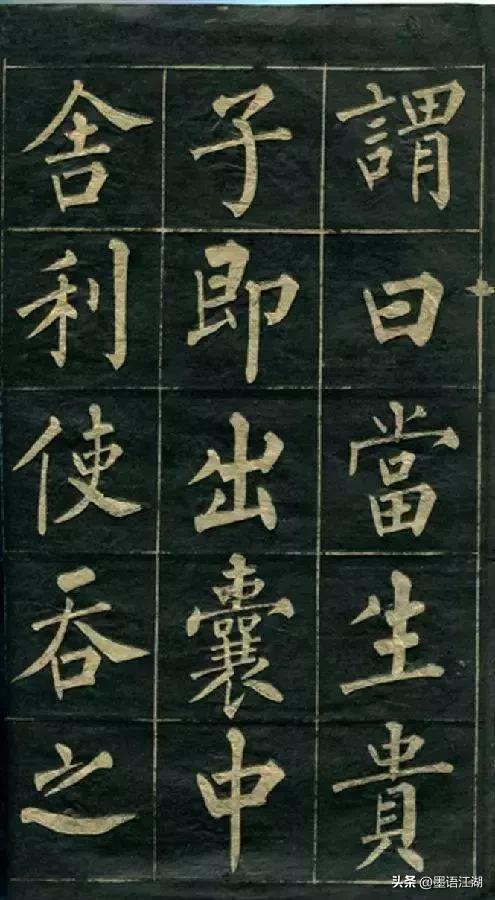 謂曰當生貴
子即出囊中
舍利使吞之
头条 @墨语江湖